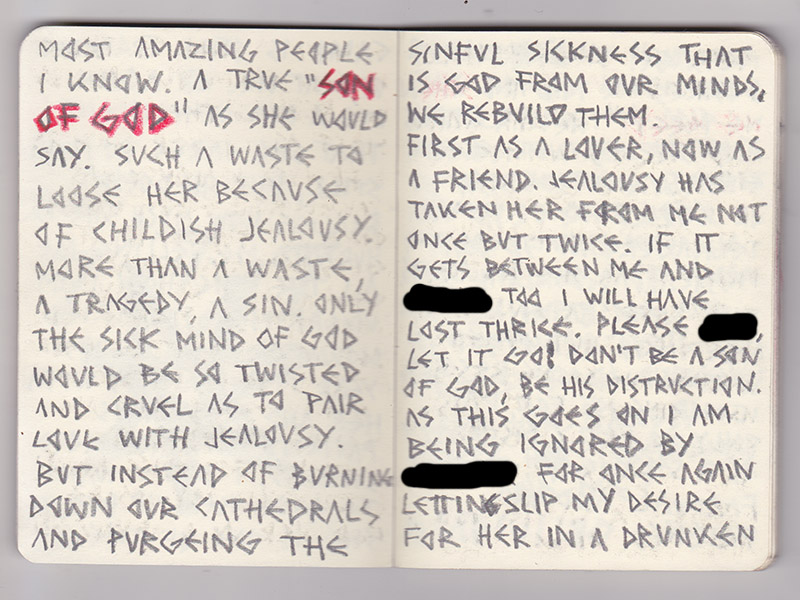 MOST AMAZING PEOPLE
I KNOW. A TRUE "SON
OF GOD" AS SHE WOULD
SAY. SUCH A WASTE TO
LOOSE HER BECAUSE
OF CHILDISH JEALOUSY.
MORE THAN A WASTE,
A TRAGEDY, A SIN. ONLY
THE SICK MIND OF GOD
WOULD BE SO TWISTED
AND CRUEL AS TO PAIR
LOVE WITH JEALOUSY.
BUT INSTEAD OF BURNING
DOWN OUR CATHEDRALS
AND PURGEING THE
SINFUL SICKNESS THAT
IS GOD FROM OUR MINDS,
WE REBUILD THEM.
FIRST AS A LOVER, NOW AS
A FRIEND. JEALOUSY HAS
TAKEN HER FROM ME NOT
ONCE BUT TWICE. IF IT
GETS BETWEEN ME AND
TOO I WILL HAVE
LOST THRICE. PLEASE ,
LET IT GO! DON'T BE A SON
OF GOD, BE HIS DISTRUCTION.
AS THIS GOES ON I AM
BEING IGNORED BY
FOR ONCE AGAIN
LETTING SLIP MY DESIRE
FOR HER IN A DRUNKEN